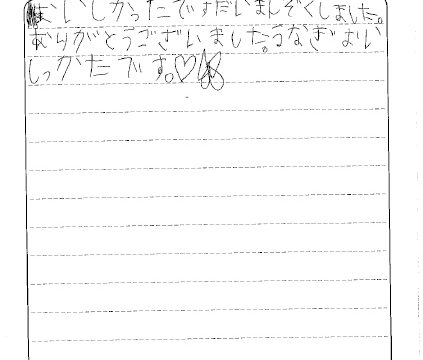 おいしかったですだいまんぞくしました。
ありがとうございました。うなぎおい
しっかたです。♡